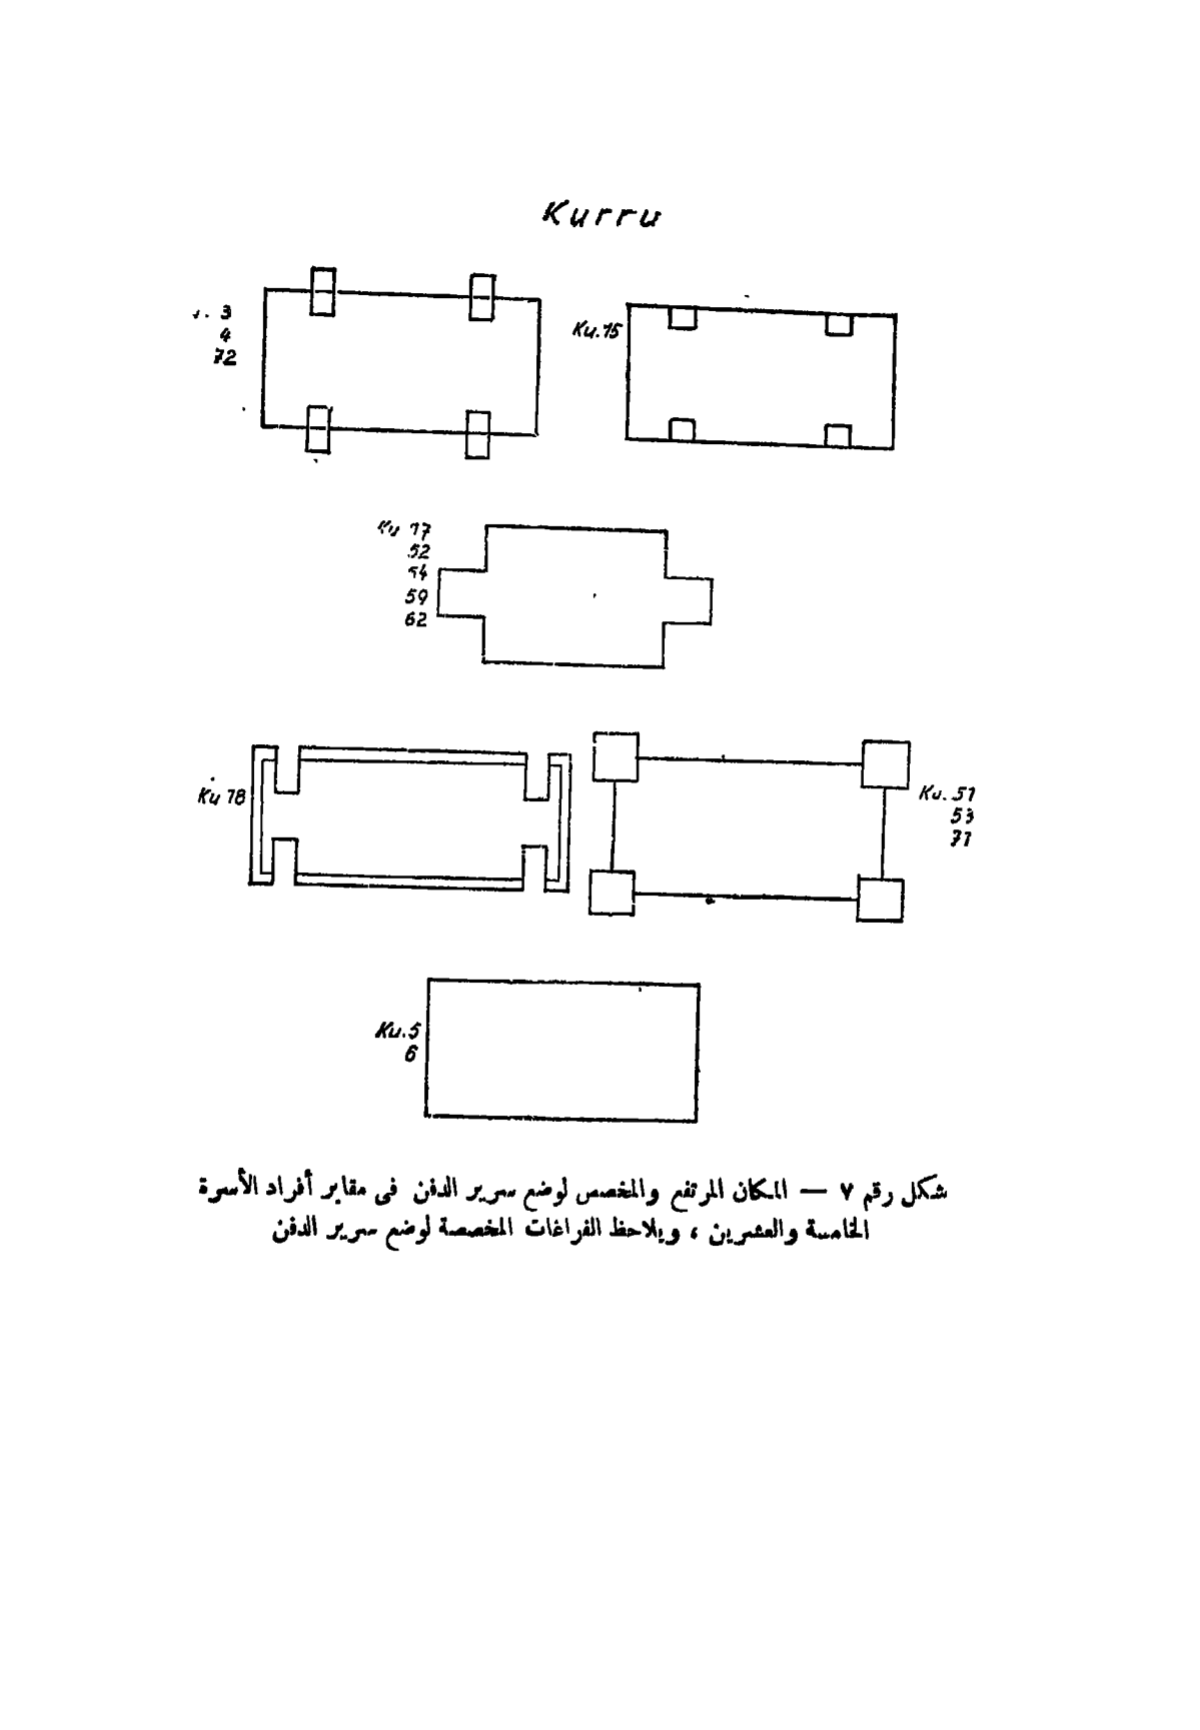 Kurru
3
4
72
Ku. 15
Ku 17
52
54
59
62
Ku 18
Ku. 51
53
71
Ku. 5
6
شكل رقم ٧ — المكان المرتفع والمخصص لوضع سرير الدفن فى مقابر أفراد الأسرة
الخامسة والعشرين ، ويلاحظ الفراغات المخصصة لوضع سرير الدفن